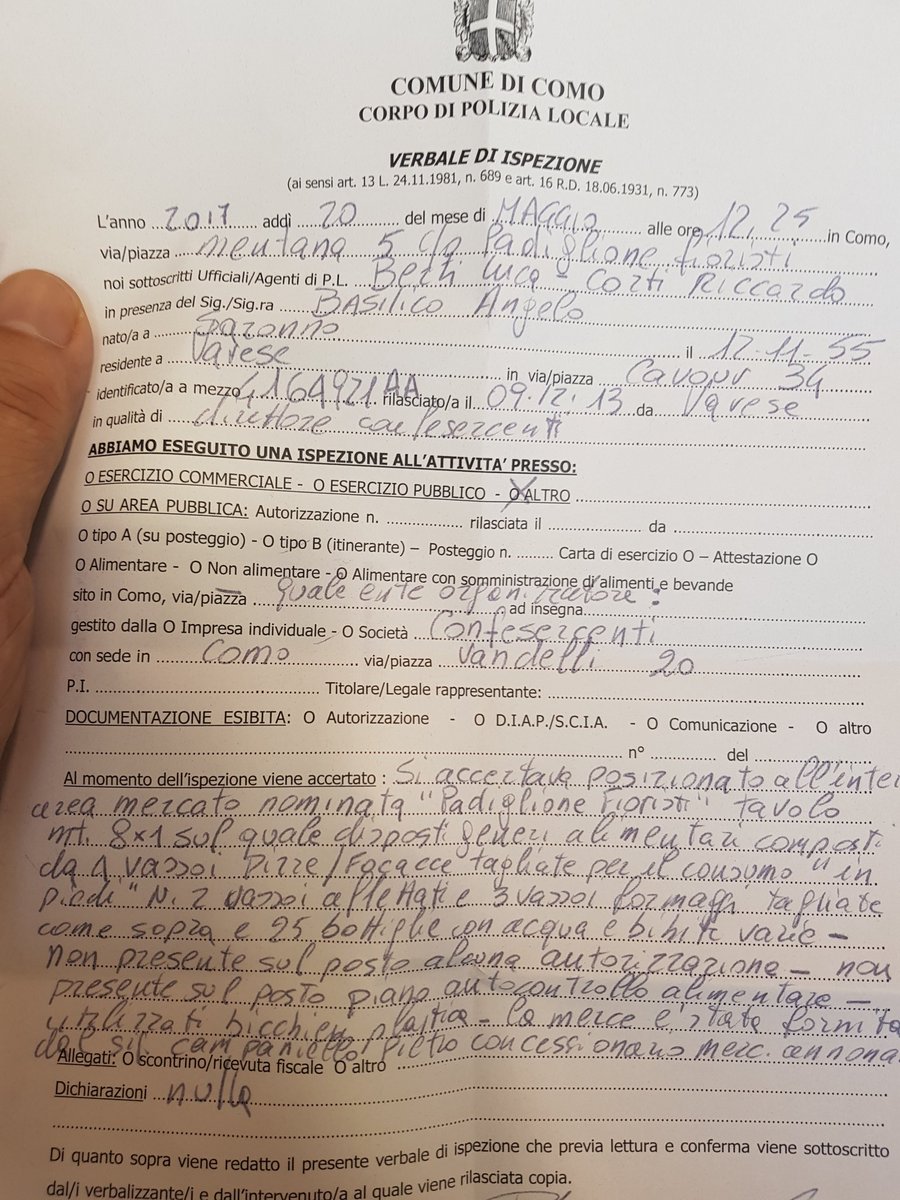 COMUNE DI COMO
CORPO DI POLIZIA LOCALE
VERBALE DI ISPEZIONE
(ai sensi art. 13 L. 24.11.1981, n. 689 e art. 16 R.D. 18.06.1931, n. 773)
L'anno 2017 addì 20 del mese di MAGGIO alle ore 12,25 in Como,
via/piazza mentana 5 c/o Padiglione fioristi
noi sottoscritti Ufficiali/Agenti di P.L. Luca - Corti Riccardo
in presenza del Sig./Sig.ra BASILICO Angelo
nato/a a Saronno il 12-11-55
residente a Varese in via/piazza Cavour 34
identificato/a a mezzo 4164921AA rilasciato/a il 09.12.13 da Varese
in qualità di direttore confesercenti
ABBIAMO ESEGUITO UNA ISPEZIONE ALL'ATTIVITA' PRESSO:
O ESERCIZIO COMMERCIALE - O ESERCIZIO PUBBLICO - O ALTRO
O SU AREA PUBBLICA: Autorizzazione n. rilasciata il da
O tipo A (su posteggio) - O tipo B (itinerante) – Posteggio n. Carta di esercizio O – Attestazione O
O Alimentare - O Non alimentare - O Alimentare con somministrazione di alimenti e bevande
sito in Como, via/piazza quale ente organizzatore: ad insegna
gestito dalla O Impresa individuale - O Società Confesercenti
con sede in Como via/piazza Vandelli 20
P.I. Titolare/Legale rappresentante:
DOCUMENTAZIONE ESIBITA: O Autorizzazione - O D.I.A.P./S.C.I.A. - O Comunicazione - O altro
n° del
Al momento dell'ispezione viene accertato : Si accertava posizionato all'inter
area mercato nominata "Padiglione Fioristi" tavolo
mt. 8x1 sul quale disposti generi alimentari composti
da 1 vassoi Pizze/Focacce tagliate per il consumo "in
piedi" N. 2 vassoi affettati e 3 vassoi formaggi tagliate
come sopra e 25 bottiglie con acqua e bibite varie -
non presente sul posto alcuna autorizzazione - non
presente sul posto piano autocontrollo alimentare -
utilizzati bicchieri plastica - la merce è stata fornita
dal Campaniello Pietro concessionario merc. annona
Allegati: O scontrino/ricevuta fiscale O altro
Dichiarazioni nulla
Di quanto sopra viene redatto il presente verbale di ispezione che previa lettura e conferma viene sottoscritto
dal/i verbalizzante/i e dall'intervenuto/a al quale viene rilasciata copia.